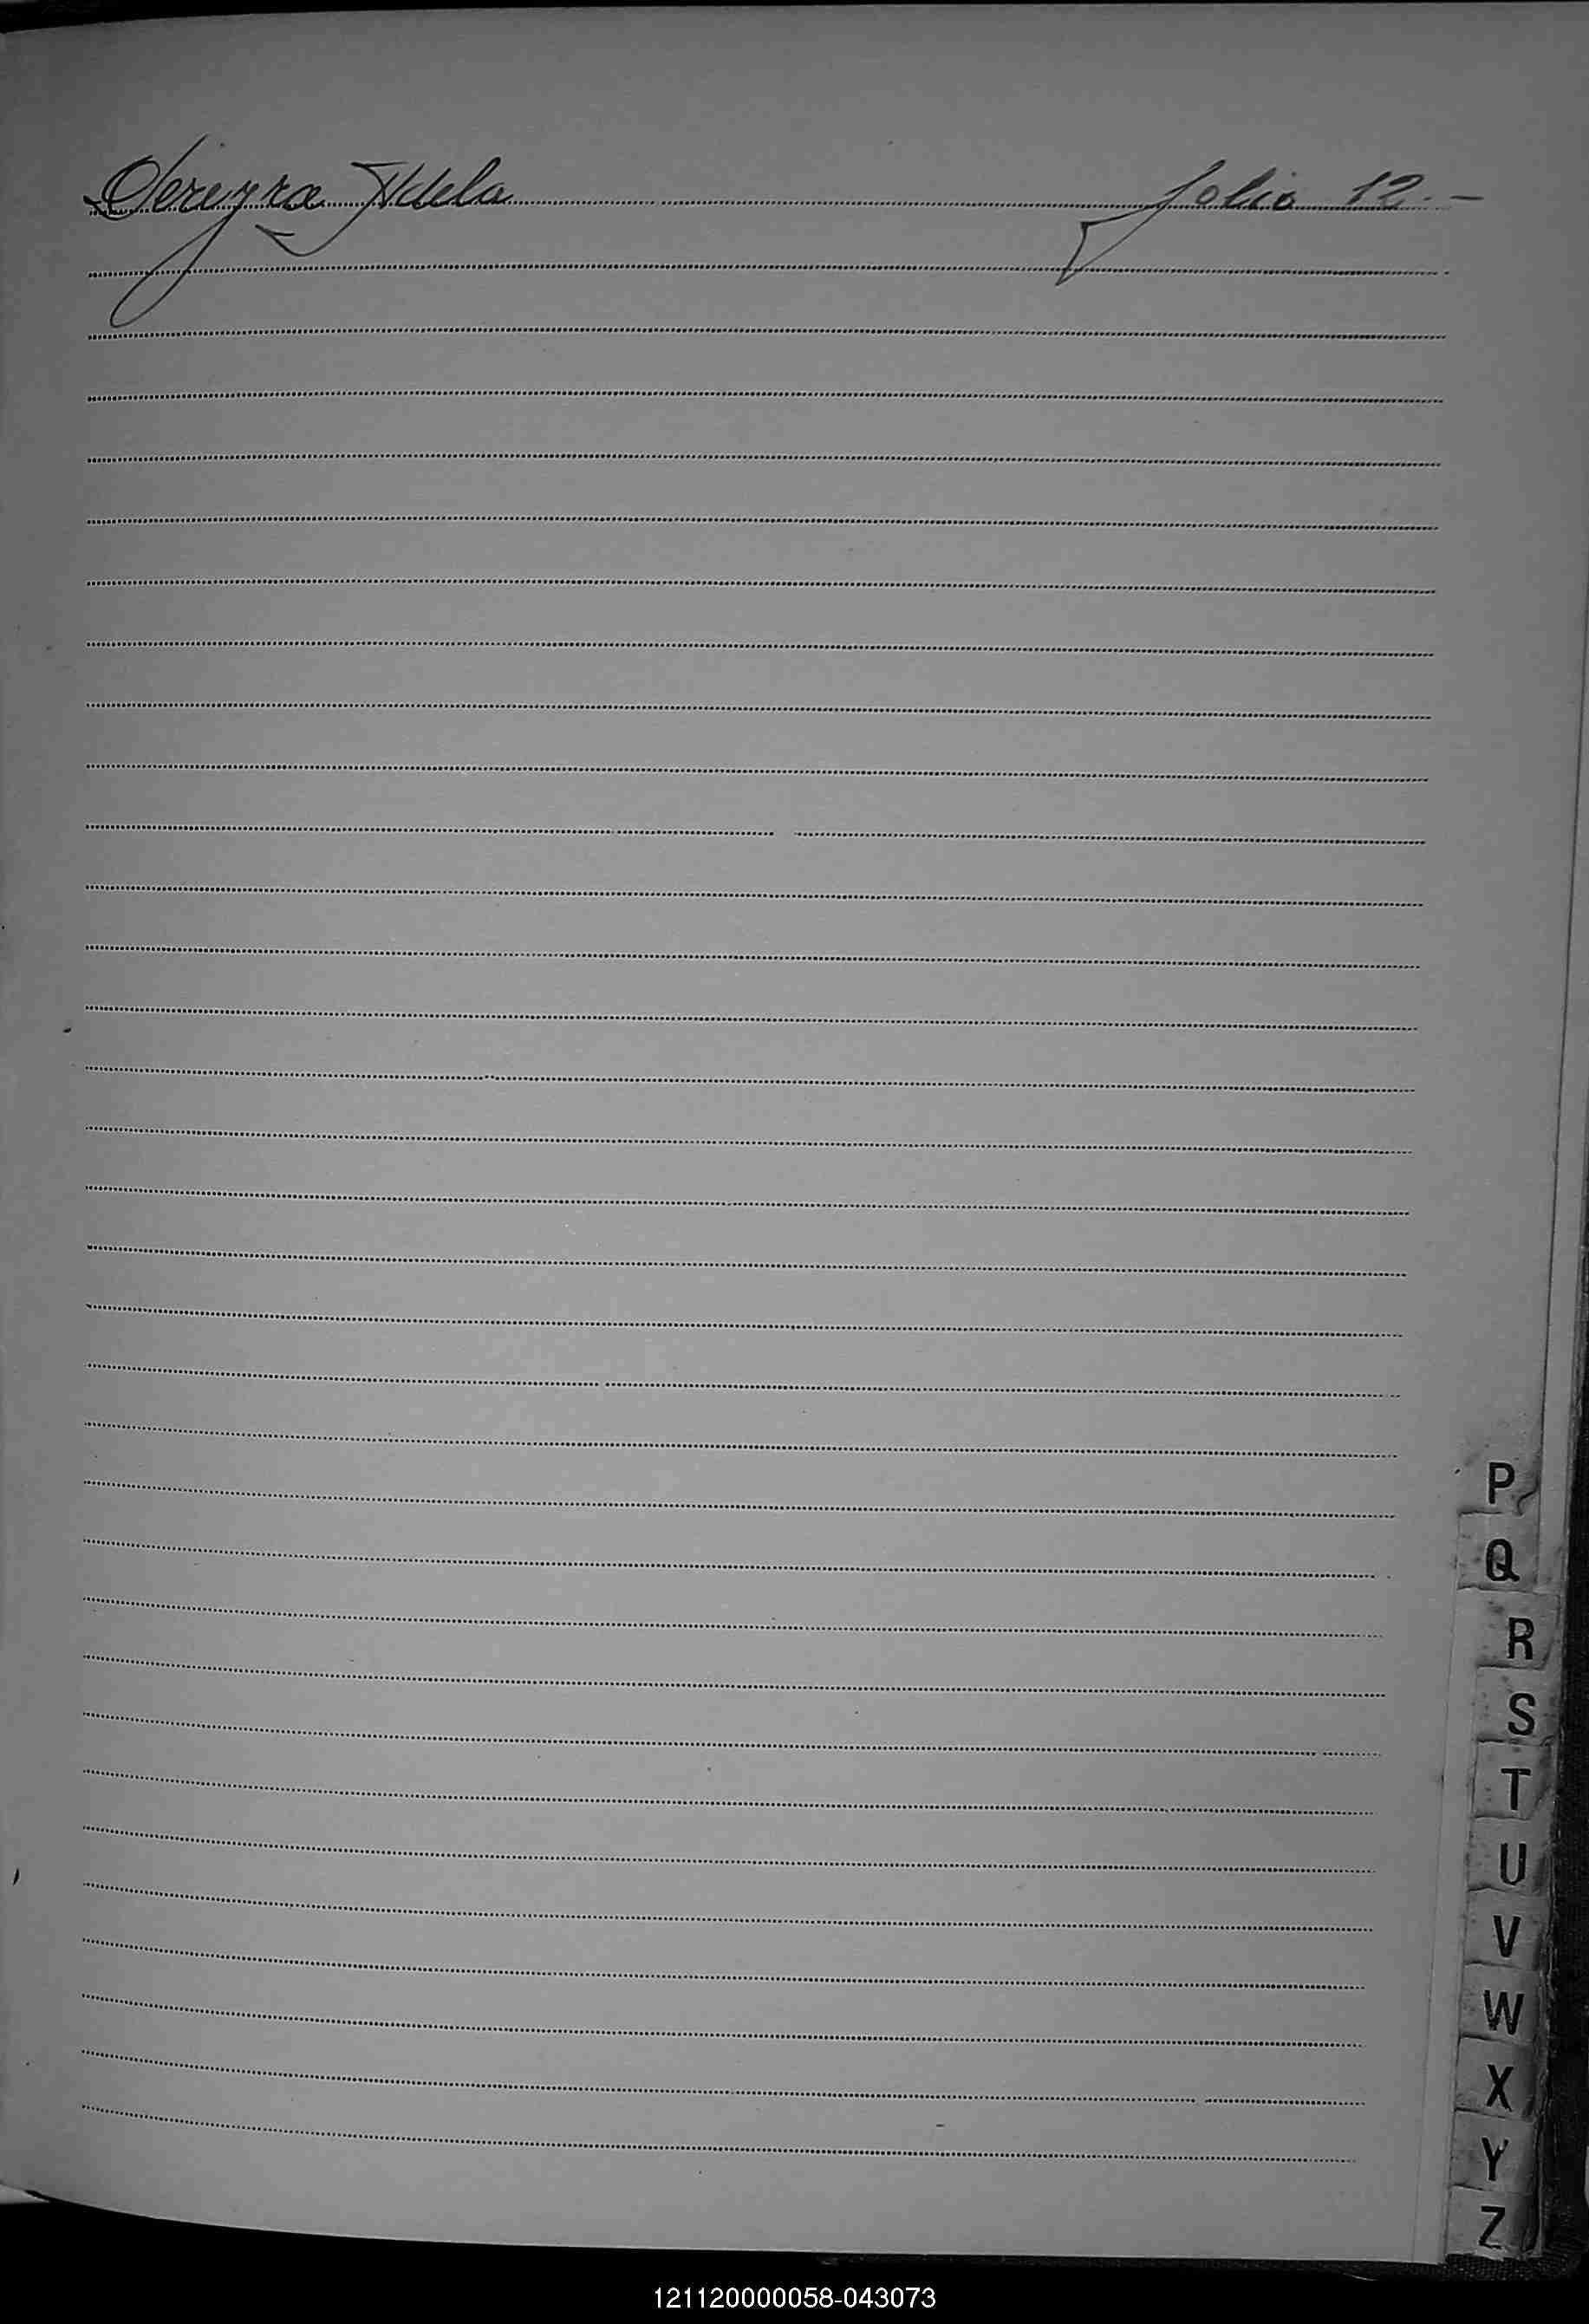 Pereyra Adela folio 12.-
P
Q
R
S
T
U
V
W
X
Y
Z
121120000058-043073